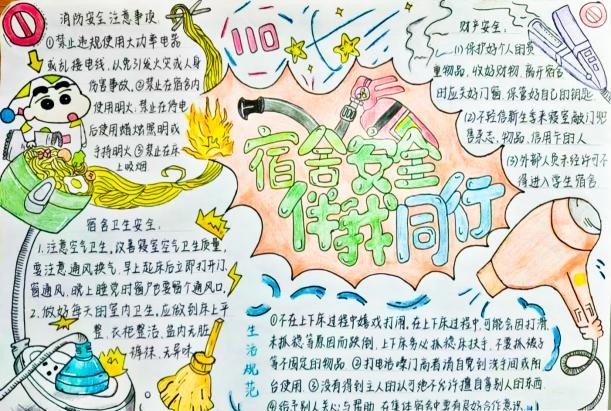 消防安全注意事项
①禁止违规使用大功率电器
或乱接电线,从免引发火灾或人身
伤害事故,②禁止在宿舍内
使用明火,禁止在停电
后使用蜡烛照明或
手持明火③禁止在床
上吸烟
宿舍卫生安全:
1.注意空气卫生,改善寝室空气卫生质量,
要注意通风换气,早上起床后立即打开门
窗通风,晚上睡觉时窗户要留个通风口,
2.做好每天的室内卫生,应做到床上平
整、衣柜整洁、盆内无脏
裤袜、无异味
110
宿舍安全
伴我同行
财产安全:
(1)保护好个人的贵
重物品,收好财物,离开宿舍
时应关好门窗,保管好自己的钥匙
(2)不轻信新生来寝室敲门兜
售杂志、物品、信用卡的人
(3)外部人员未经许可不
得进入学生宿舍
生活规范
①不在上下床过程中嬉戏打闹,在上下床过程中,可能会因打滑、
未抓稳等原因而跌倒,上下床务必抓稳床扶手,不要抓蚊子
等不固定的物品.②打电话嗓门高者请自觉到洗手间或阳
台使用.③没有得到主人的认可绝不允许擅自拿别人的东西
④给予别人关心与帮助,在集体宿舍中要有良好合作意识